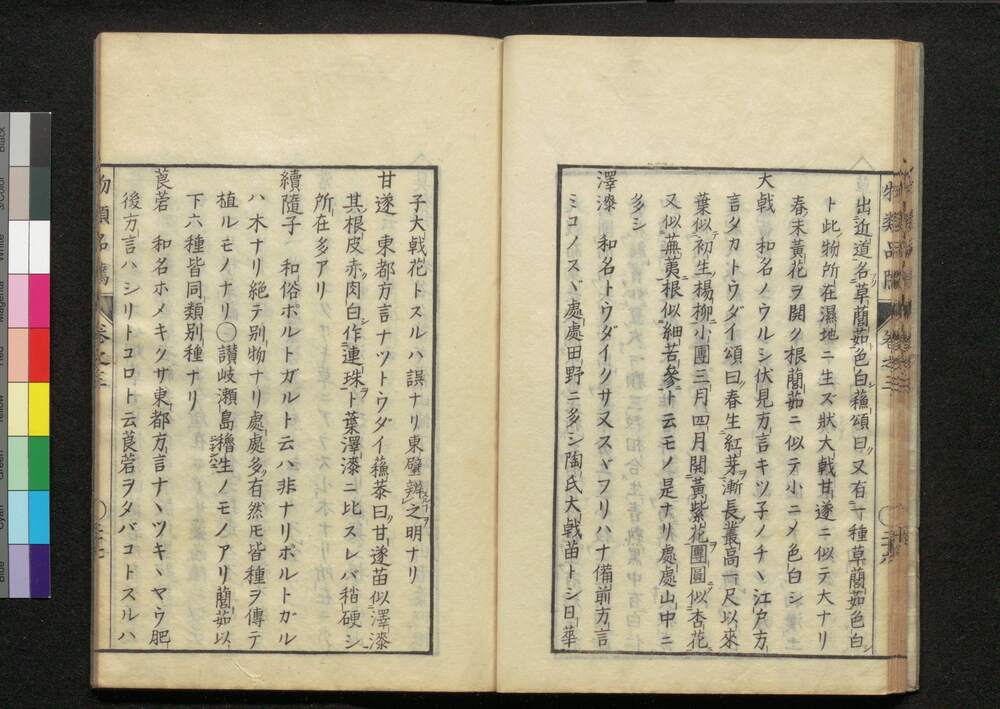 物類品隲 卷之三 〇二十六
出近道名草䕡茹色白蘓頌曰又有一種草䕡茹色白
ト此物所在濕地ニ生ズ狀大戟甘遂ニ似テ大ナリ
春末黃花ヲ開ク根䕡茹ニ似テ小ニメ色白シ
大戟 和名ノウルシ伏見方言キツ子ノチヽ江戸方
言タカトウダイ頌曰春生紅芽漸長叢高一尺以來
葉似初生楊柳小團三月四月開黃紫花團圓似杏花
又似蕪荑根似細苦參ト云モノ是ナリ處處山中ニ
多シ
澤漆 和名トウダイクサ又スヾフリハナ備前方言
ミコノスヾ處處田野ニ多シ陶氏大戟苗トシ日華
子大戟花トスルハ誤ナリ東璧辨之明ナリ
甘遂 東都方言ナツトウダイ蘓恭曰甘遂苗似澤漆
其根皮赤肉白作連珠ト葉澤漆ニ比スレバ稍硬シ
所在多アリ
續隨子 和俗ポルトガルト云ハ非ナリポルトガル
ハ木ナリ絶テ別物ナリ處處多有然𪜈皆種ヲ傳テ
植ルモノナリ〇讃岐瀬島穭生ノモノアリ䕡茹以
下六種皆同類別種ナリ
莨菪 和名ホメキクサ東都方言ナヽツキヽヤウ肥
後方言ハシリトコロト云莨菪ヲタバコトスルハ
物類品隲 卷之三 〇二十七